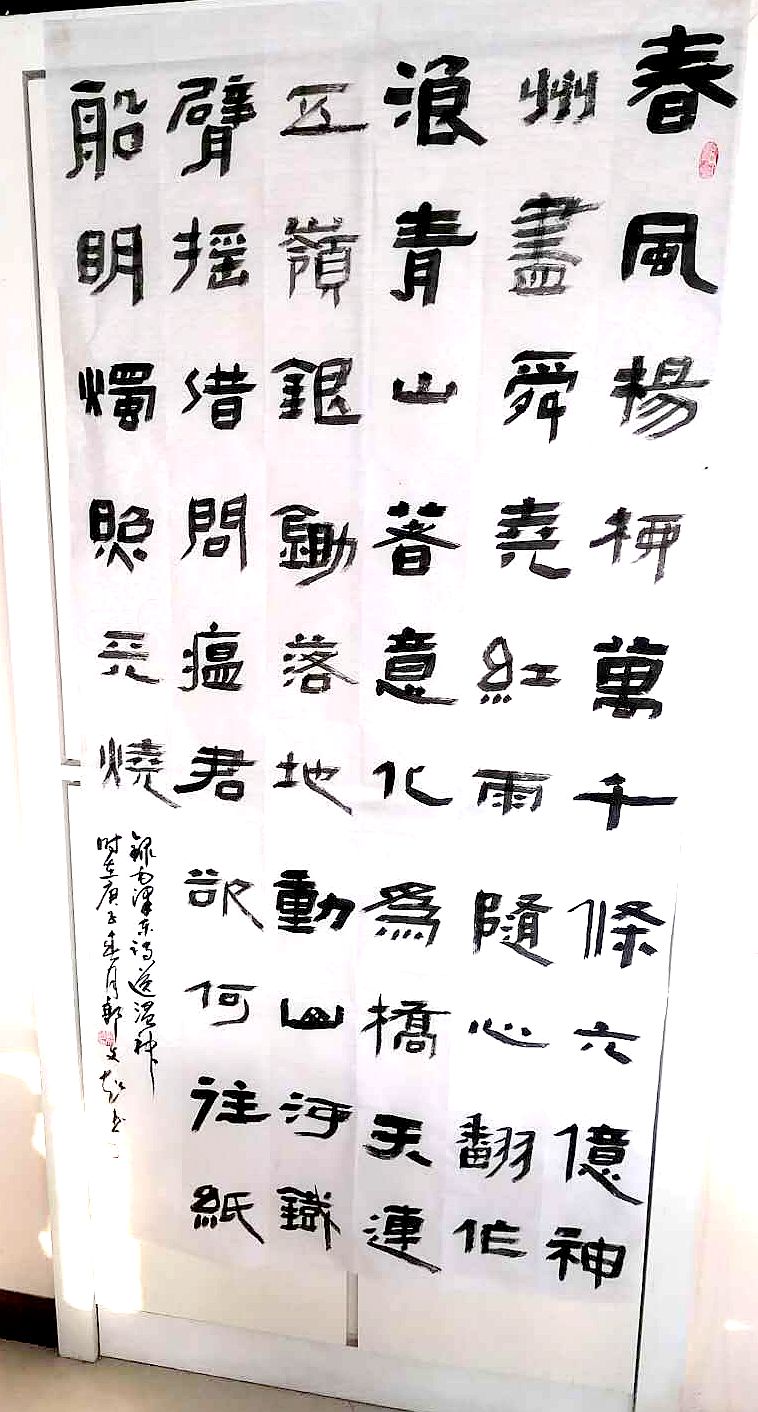 春風楊柳萬千條六億神
州盡舜堯紅雨隨心翻作
浪青山著意化為橋天連
五嶺銀鋤落地動山河鐵
臂摇借問瘟君欲何往紙
船明燭照天燒
錄毛澤東詩送瘟神
时在庚子春月郭文